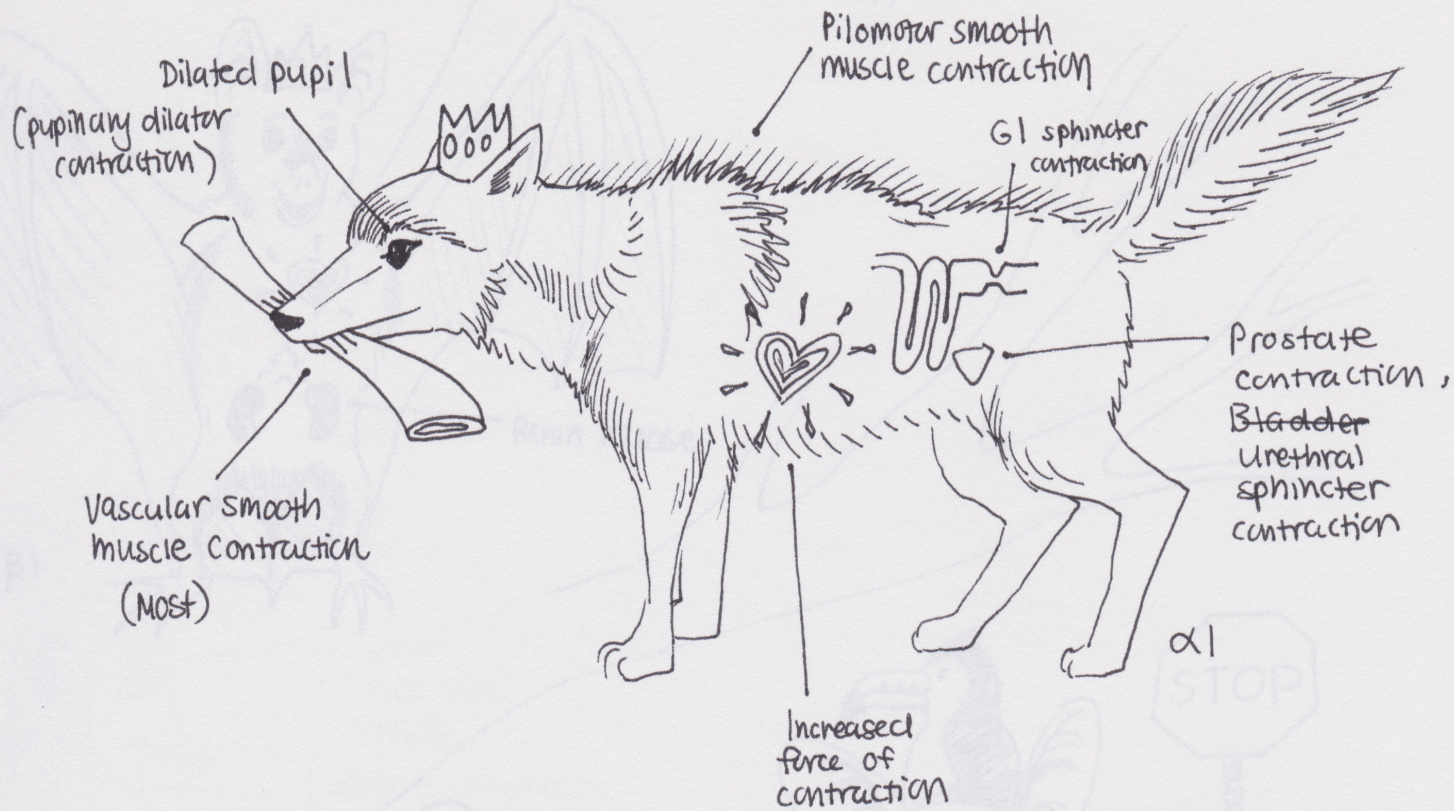 Dilated pupil
(pupillary dilator
contraction)
Pilomotor smooth
muscle contraction
GI sphincter
contraction
Prostate
contraction,
Bladder
urethral
sphincter
contraction
Vascular smooth
muscle contraction
(Most)
α1
Increased
force of
contraction
STOP
β1